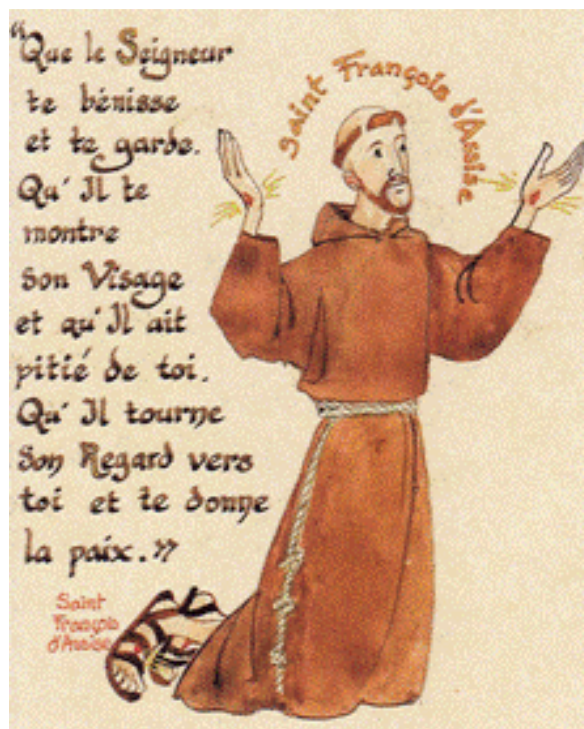 “Que le Seigneur
te bénisse
et te garde.
Qu' Il te
montre
son Visage
et qu'Il ait
pitié de toi.
Qu' Il tourne
Son Regard vers
toi et te donne
la paix.”
Saint François d'Assise
Saint
François
d'Assise